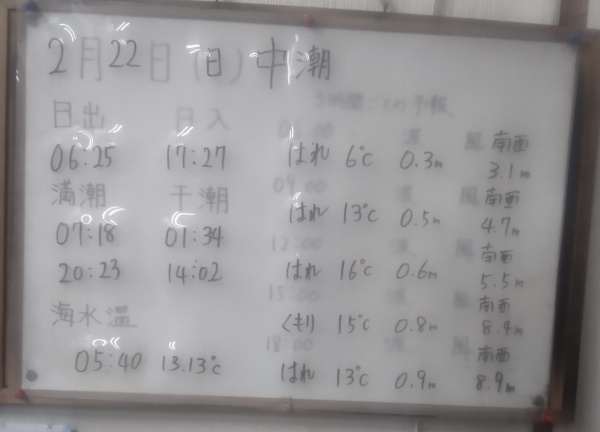 2月22日(日)中潮
3時間ごとの予報
日出 日入
06:25 17:27
満潮 干潮
07:18 01:34
20:23 14:02
海水温
05:40 13.13℃
06:00 波 風 南西
はれ 6℃ 0.3m 3.1m
09:00 波 風 南西
はれ 13℃ 0.5m 4.7m
12:00 波 風 南西
はれ 16℃ 0.6m 5.5m
15:00 波 風 南西
くもり 15℃ 0.8m 8.4m
18:00 波 風 南西
はれ 13℃ 0.9m 8.9m